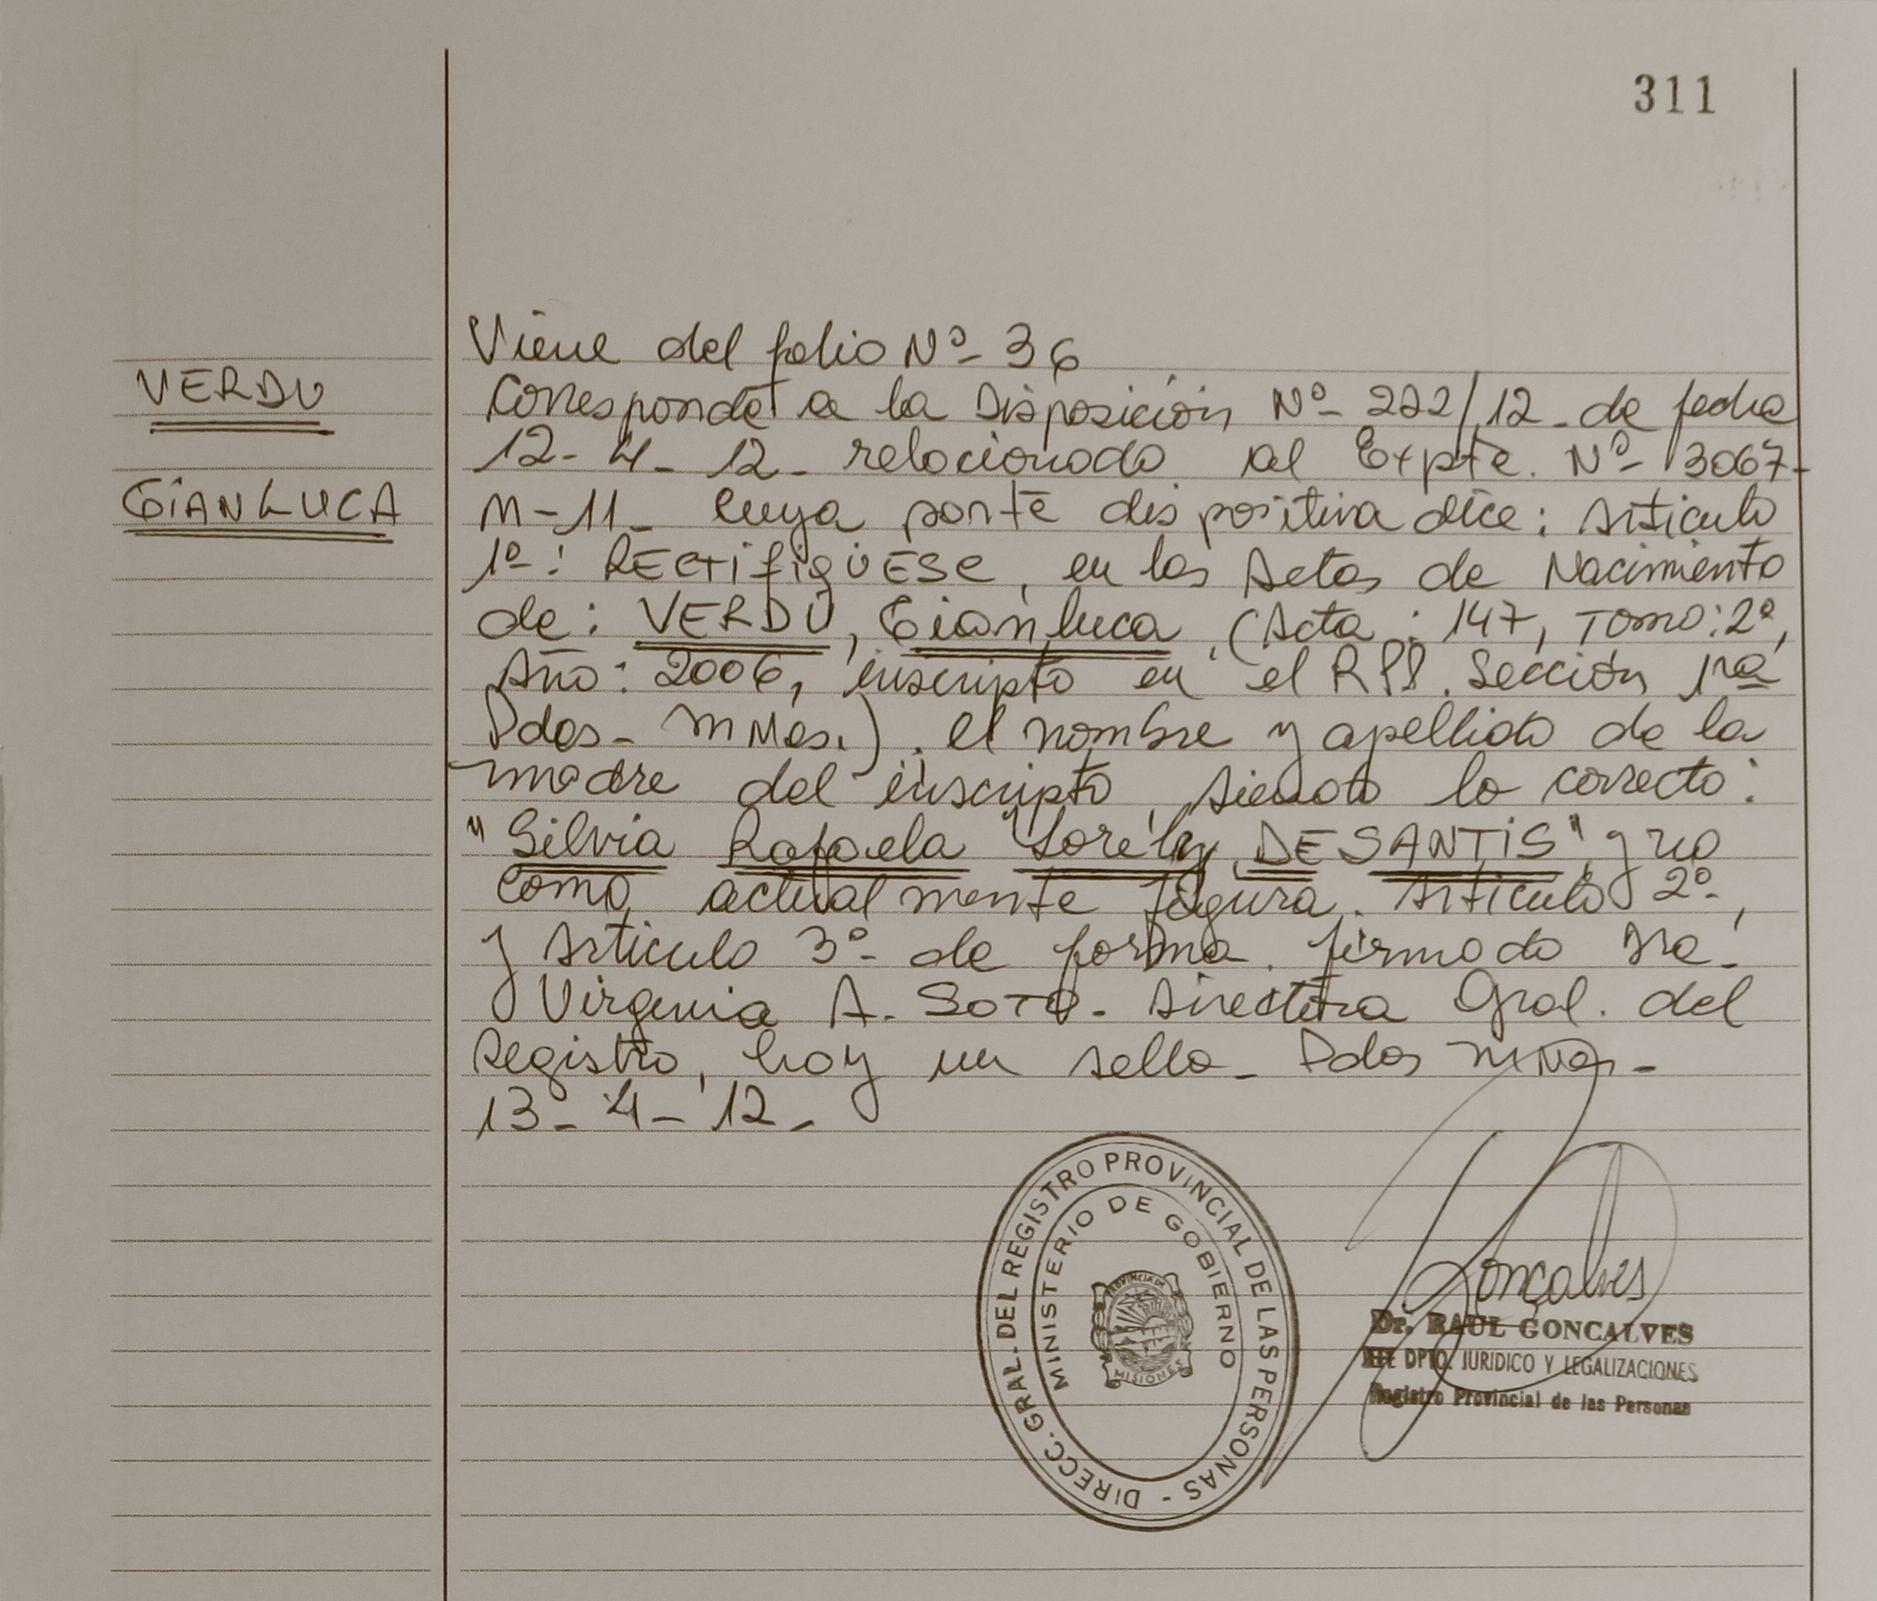 311
VERDU
GIANLUCA
Viene del folio Nº 36
Corresponde a la Disposición Nº 222/12 de fecha
12-4-12- relacionado al Expte. Nº 3067-
M-11- cuya parte dispositiva dice: Artículo
1º: RECTifiqÜESE, en las Actas de Nacimiento
de: VERDU, Gianluca, (Acta: 147, Tomo: 2º,
Año: 2006, inscripto en el RPP. Sección 1ra
Pdas- Mnes.). el nombre y apellido de la
madre del inscripto, siendo lo correcto:
"Silvia Rafaela DE SANTIS", y no
como actualmente figura. Artículo 2º,
y Artículo 3º de forma. firmado Sra.
Virginia A. SOTO. Directora Gral. del
Registro, hay un sello- Pdas Mnes-
13-4-12-
DIRECC. GRAL. DEL REGISTRO PROVINCIAL DE LAS PERSONAS -
MINISTERIO DE GOBIERNO
PROVINCIA DE
MISIONES
Goncalves
Dr. RAUL GONCALVES
JEFE DPTO. JURIDICO Y LEGALIZACIONES
Registro Provincial de las Personas